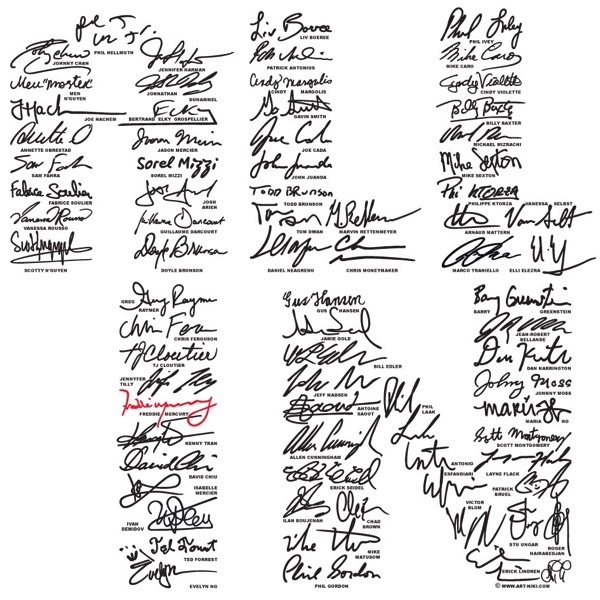 PHIL HELLMUTH
JOHNNY CHAN
JENNIFER HARMAN
MEN
N'GUYEN
JOHNATHAN
DUHAMEL
JOE HACHEM
BERTRAND ELKY GROSPELLIER
ANNETTE OBRESTAD
JASON MERCIER
Sam Farha
SAM FAHRA
Sorel Mizzi
SOREL MIZZI
Fabrice Soulier
FABRICE SOULIER
JOSH
ARIEH
Vanessa Rousso
VANESSA ROUSSO
Guillaume Darcourt
GUILLAUME DARCOURT
SCOTTY N'GUYEN
DOYLE BRUNSON
Liv Boeree
LIV BOEREE
PATRICK ANTONIUS
Cindy Margolis
CINDY MARGOLIS
GAVIN SMITH
JOE CADA
John Juanda
JOHN JUANDA
TODD BRUNSON
TODD BRUNSON
TOM DWAN
MARVIN RETTENMEYER
DANIEL NEAGRENU
CHRIS MONEYMAKER
Phil Ivey
PHIL IVEY
Mike Caro
MIKE CARO
Cindy Violette
CINDY VIOLETTE
Billy Baxter
BILLY BAXTER
MICHAEL MIZRACHI
Mike Sexton
MIKE SEXTON
PHILIPPE KTORZA
VANESSA SELBST
ARNAUD MATTERN
MARCO TRANIELLO
ELLI ELEZRA
GREG
RAYMER
Greg Raymer
CHRIS FERGUSON
TJ Cloutier
TJ CLOUTIER
JENNYFER
TILLY
FREDDIE MERCURY
KENNY TRAN
David Chiu
DAVID CHIU
ISABELLE
MERCIER
IVAN
DEMIDOV
Ted Forrest
TED FORREST
Evelyn
EVELYN NG
Gus Hansen
GUS HANSEN
JAMIE GOLD
BILL EDLER
JEFF MADSEN
ANTOINE
SAOUT
ALLEN CUNNINGHAM
ERICK SEIDEL
ILAN BOUJENAH
CHAD
BROWN
MIKE
MATUSOM
Phil Gordon
PHIL GORDON
Phil
PHIL
LAAK
Barry Greenstein
BARRY GREENSTEIN
JEAN-ROBERT
BELLANDE
DAN HARRINGTON
Johnny Moss
JOHNNY MOSS
MARIA HO
Scott Montgomery
SCOTT MONTGOMERY
ANTONIO
ESFANDIARI
LAYNE FLACK
PATRICK
BRUEL
VICTOR
BLOM
STU UNGAR
ROGER
HAIRABEDJAN
ERICK LINDREN
© WWW.ART-NIKI.COM